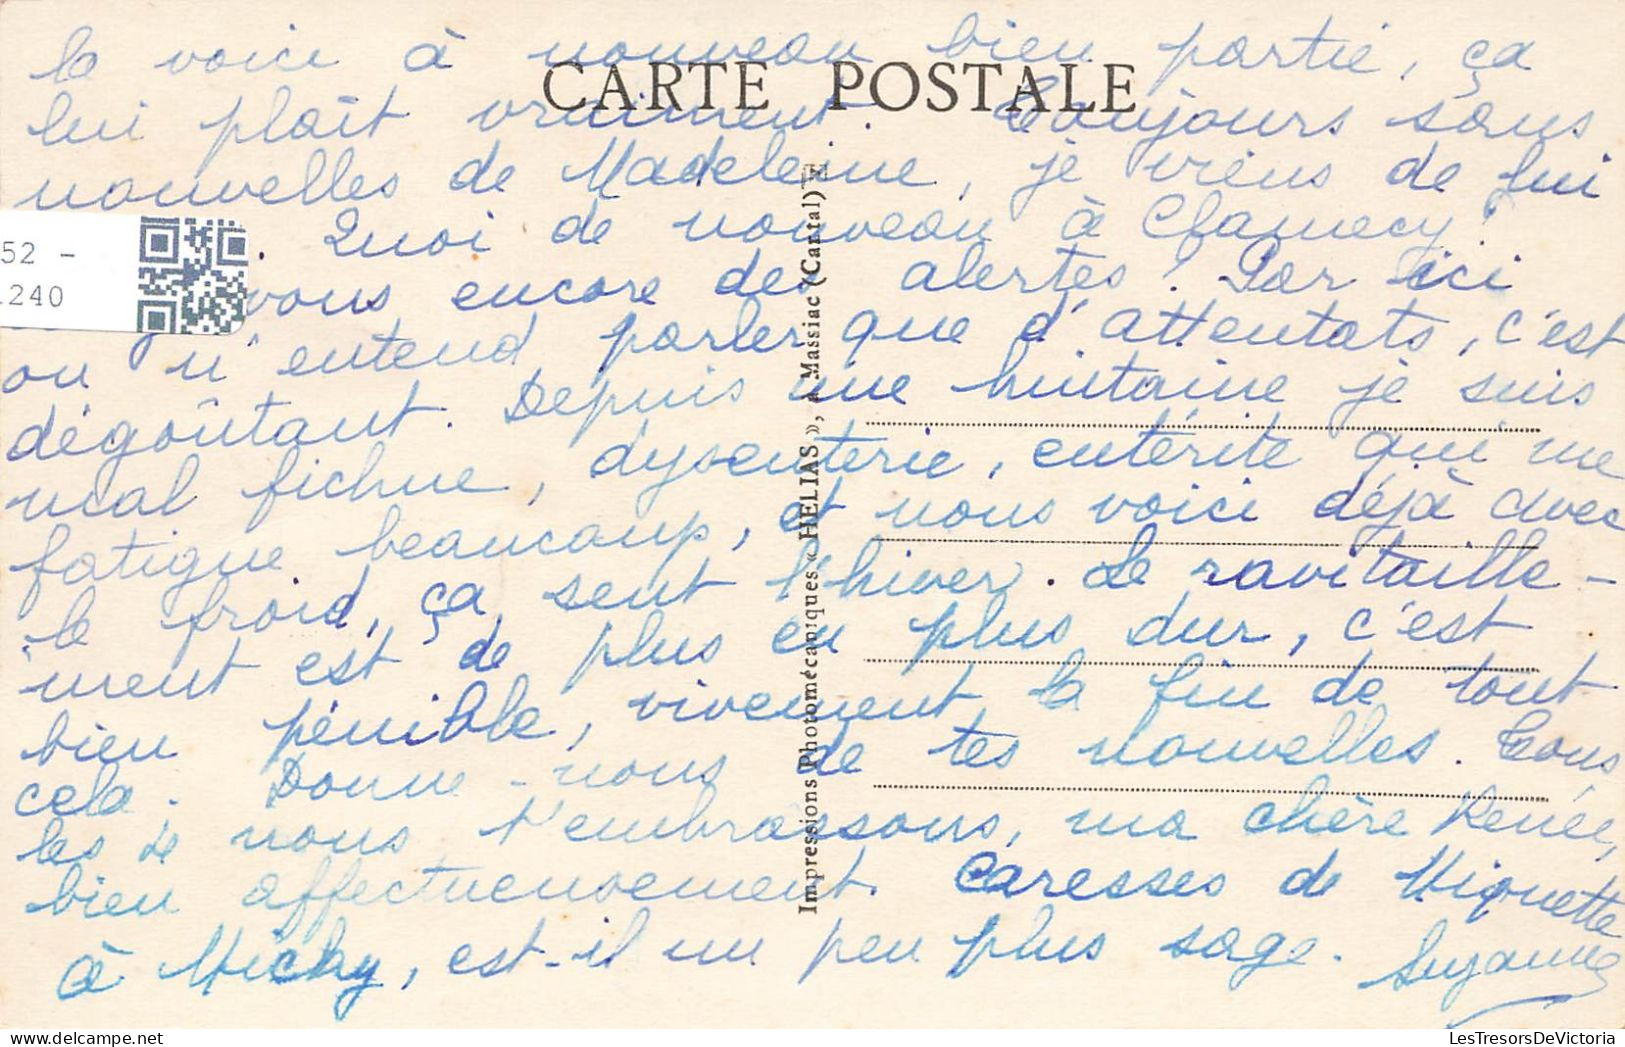 la voici à nouveau bien partie, ça
CARTE POSTALE
lui plaît vraiment. Toujours sans
nouvelles de Madeleine, je viens de lui
. Quoi de nouveau à Clamecy?
52 -
1240
vous encore des alertes? Par ici
on n'entend parler que d'attentats, c'est
dégoûtant. Depuis une huitaine je suis
mal fichue, dysenterie, entérite qui me
fatigue beaucoup, et nous voici déjà avec
le froid, ça sent l'hiver. Le ravitaille-
ment est de plus en plus dur, c'est
bien pénible, vivement la fin de tout
cela. Donne-nous de tes nouvelles. Tous
les 4 nous t'embrassons, ma chère Renée,
bien affectueusement. Caresses de Miquette
à Michy, est-il un peu plus sage. Suzanne
Impressions Photomécaniques « HELIAS », à Massiac (Cantal)
LesTresorsDeVictoria.com